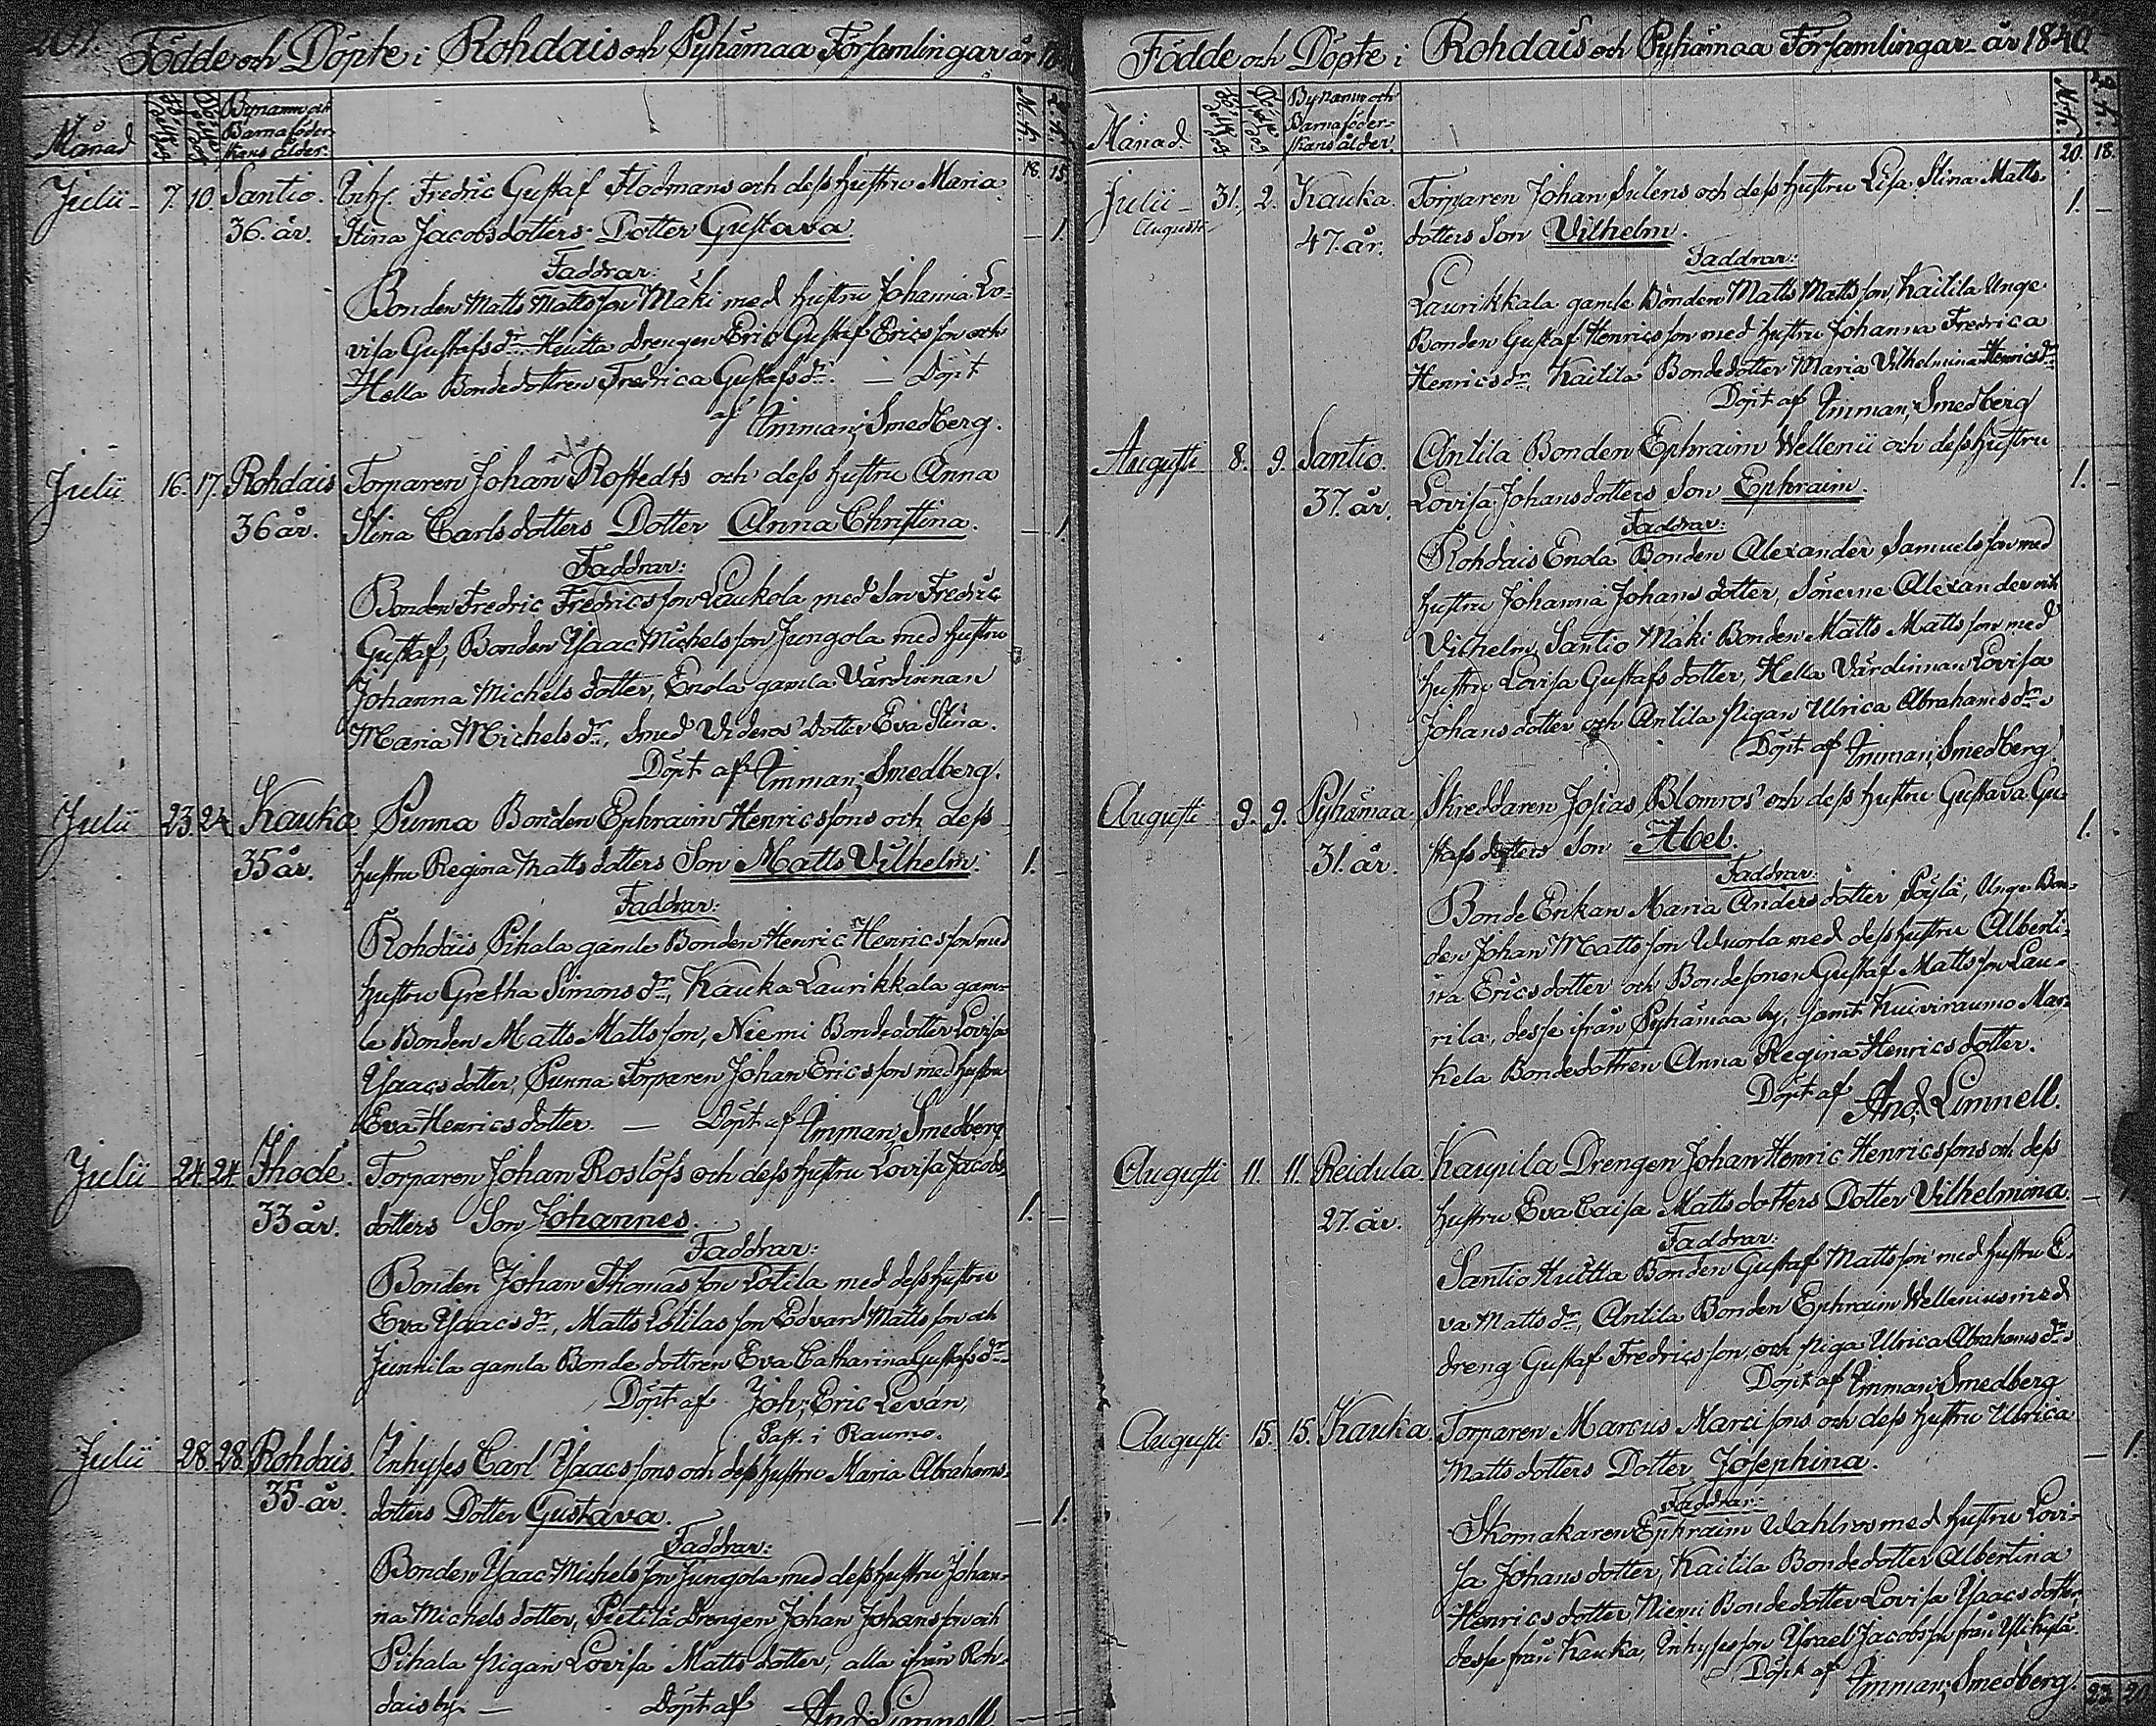 Födde och Döpte i Rohdais och Pyhämaa Församlingar år
Månad
Bynamn och
Barnaföder-
skans ålder.
M.k.
Q.k.
16. 15.
Julii 7. 10. Santio. Inh. Fredric Gustaf Flodmans och dess hustru Maria
36. år. Stina Jacobsdotters Dotter Gustava. — 1.
Faddrar:
Bonden Matts Mattsson Mäki med hustru Johanna Lo-
visa Gustafsdr. Heitta drengen Eric Gustaf Ericsson och
Hella Bondedottren Fredrica Gustafsdr. — Döpt
af Imman; Smedberg.
Julii 16. 17. Rohdais Torparen Johan Rostedts och dess hustru Anna
36 år. Stina Carlsdotters Dotter Anna Christina. — 1.
Faddrar:
Bonden Fredric Fredricsson Laukola med Son Fredric
Gustaf, Bonden Ysaac Michelsson Jungola med hustru
Johanna Michelsdotter, Enola gamla Värdinnan
Maria Michelsdr, Smed Videros' Dotter Eva Stina.
Döpt af Imman; Smedberg.
Julii 23. 24. Kauka Sunna Bonden Ephraim Henricssons och dess
35 år. hustru Regina Mattsdotters Son Matts Vilhelm. 1. —
Faddrar:
Rohdais Pihala gamle Bonden Henric Henricsson med
hustru Gretha Simonsdr, Kauka Laurikkala gam-
le Bonden Matts Mattsson, Niemi Bondedotter Lovisa
Ysaacsdotter, Sunna Torparen Johan Ericsson med hustru
Eva Henricsdotter. — Döpt af Imman; Smedberg
Julii 24. 24. Ihode. Torparen Johan Roslöfs och dess hustru Lovisa Jacobs
33 år. dotters Son Johannes. 1. —
Faddrar:
Bonden Johan Thomasson Lotila med dess hustru
Eva Ysaacsdr, Matts Lotilas son Edvard Mattsson och
Junnila gamla Bondedottren Eva Catharina Gustafsdr
Döpt af Joh; Eric Levän,
Past. i Raumo.
Julii 28. 28. Rohdais. Inhyses Carl Ysaacssons och dess hustru Maria Abrahams-
35 år. dotters Dotter Gustava. — 1.
Faddrar:
Bonden Ysaac Michelsson Jungola med dess hustru Johan-
na Michelsdotter, Pietilä drengen Johan Johansson och
Pihala pigan Lovisa Mattsdotter, alla ifrån Roh-
dais by. — Döpt af And. Limnell
Födde och Döpte i Rohdais och Pyhämaa Församlingar år 1840
Månad
Bynamn och
Barnaföder-
skans ålder.
M.k.
Q.k.
20. 18.
Julii 31. 2. Kauka. Torparen Johan Sulens och dess hustru Lisa Stina Matts-
Augusti 47. år. dotters Son Vilhelm. 1. —
Faddrar:
Laurikkala gamle Bonden Matts Mattsson, Kaitila Unge
Bonden Gustaf Henricsson med hustru Johanna Fredrica
Henricsdr, Kaitila Bondedotter Maria Vilhelmina Henricsdr
Döpt af Imman; Smedberg
Augusti 8. 9. Santio. Antila Bonden Ephraim Wellenii och dess hustru
37. år. Lovisa Johansdotters Son Ephraim. 1. —
Faddrar:
Rohdais Enola Bonden Alexander Samuelsson med
hustru Johanna Johansdotter, Sönerne Alexander och
Vilhelm, Santio Mäki Bonden Matts Mattsson med
hustru Lovisa Gustafsdotter, Hella Värdinnan Lovisa
Johansdotter och Antila pigan Ulrica Abrahamsdr
Döpt af Imman; Smedberg.
Augusti 9. 9. Pyhämaa Skreddaren Josias Blomros' och dess hustru Gustava Gu-
31. år. stafsdotters Son Abel. 1.
Faddrar:
Bonde Enkan Maria Andersdotter Päylä, Unge Bon-
den Johan Mattsson Wuorla med dess hustru Alberti-
na Ericsdotter och Bondesonen Gustaf Mattsson Lau-
rila, desse ifrån Pyhämaa by, samt Kuiviraumo Mar-
kela Bondedottren Anna Regina Henricsdotter.
Döpt af And. Limnell.
Augusti 11. 11. Reidula. Kaupila Drengen Johan Henric Henricssons och dess
27. år. hustru Eva Caisa Mattsdotters Dotter Vilhelmina. —
Faddrar:
Santio Huitta Bonden Gustaf Mattsson med hustru E-
va Mattsdr, Antila Bonden Ephraim Wellenius med
dreng Gustaf Fredricsson, och piga Ulrica Abrahamsdr
Döpt af Imman; Smedberg
Augusti 15. 15. Kauka Torparen Marcus Marcissons och dess hustru Ulrica
Mattsdotters Dotter Josephina. — 1.
Faddrar:
Skomakaren Ephraim Wahlros med hustru Lovi-
sa Johansdotter, Kaitila Bondedotter Albertina
Henricsdotter Niemi Bondedotter Lovisa Ysaacsdotter,
desse från Kauka, Inhysesson Ysrael Jacobsson från Ylikylä.
Döpt af Imman; Smedberg.